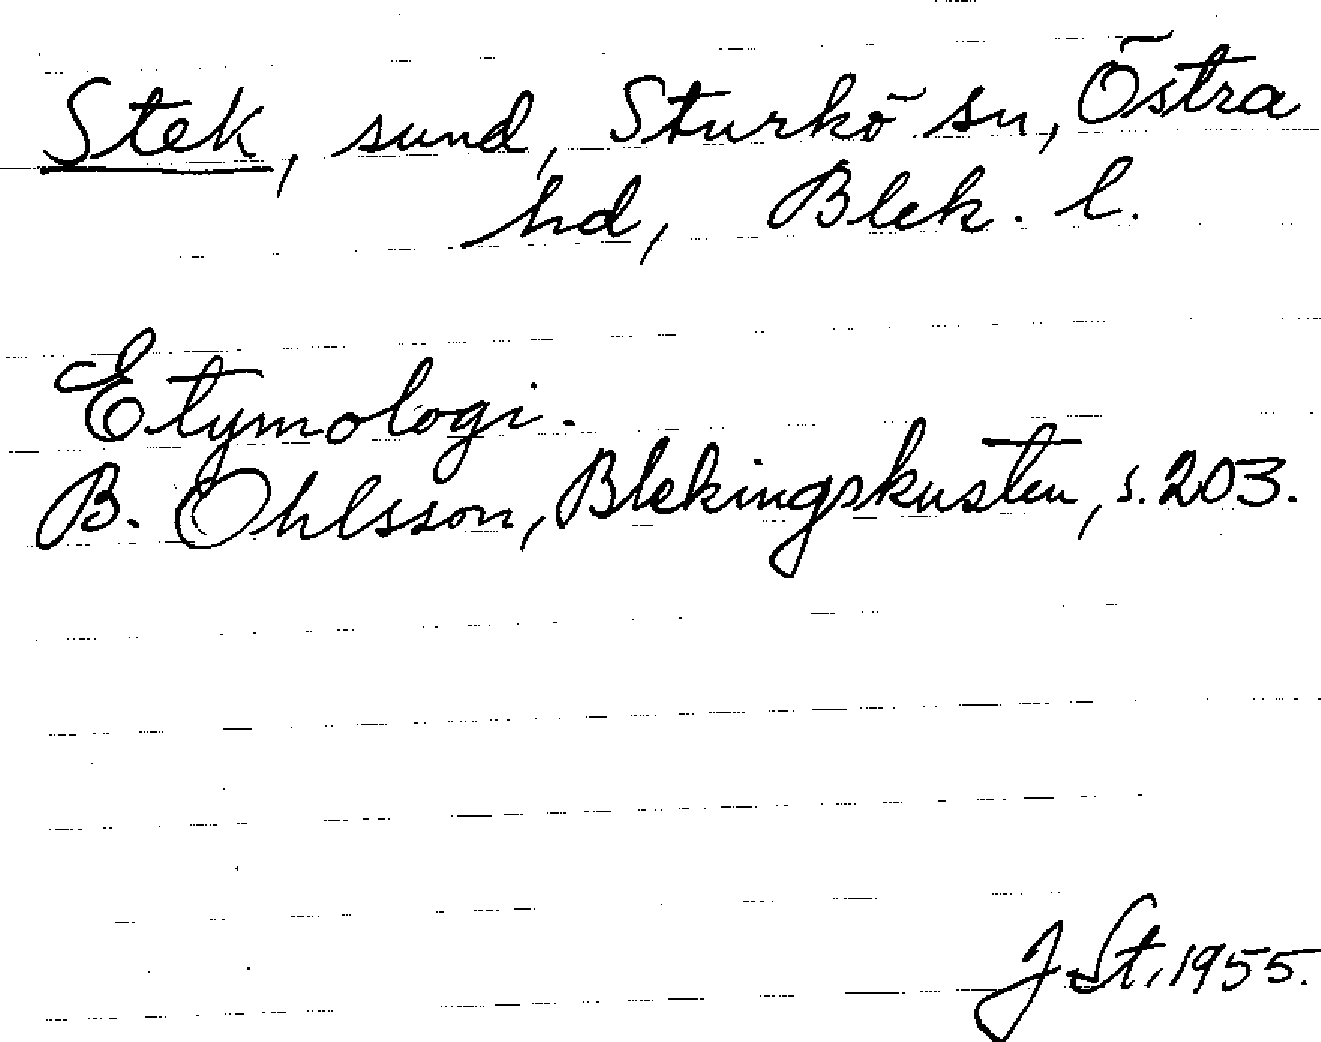 Stek, sund, Sturkö sn, Östra
hd, Blek. l.
Etymologi.
B. Ohlsson, Blekingskusten, s. 203.
J. St. 1955.